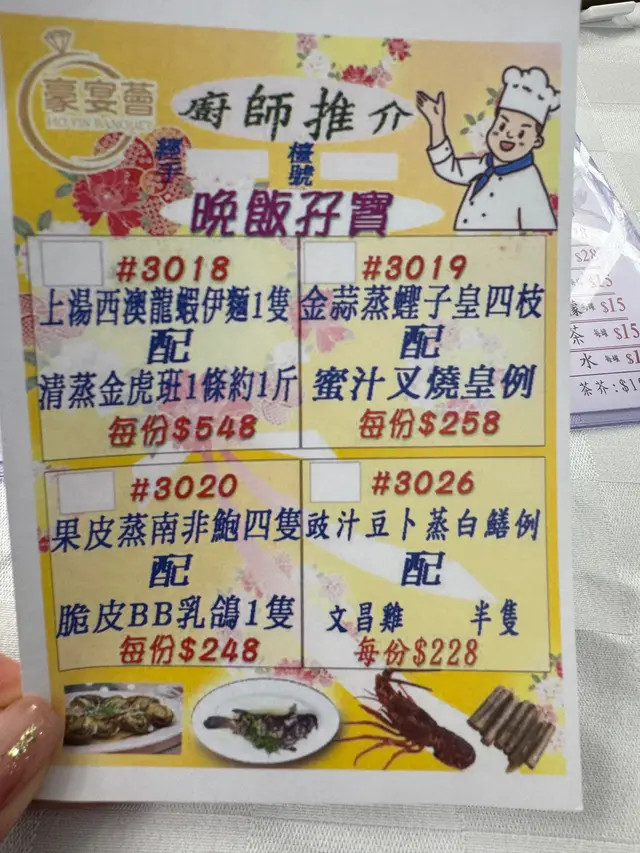 豪宴薈
HO YIN BANQUET
廚師推介
經手
檯號
晚飯孖寶
#3018
上湯西澳龍蝦伊麵1隻
配
清蒸金虎班1條約1斤
每份$548
#3019
金蒜蒸蟶子皇四枝
配
蜜汁叉燒皇例
每份$258
#3020
果皮蒸南非鮑四隻
配
脆皮BB乳鴿1隻
每份$248
#3026
豉汁豆卜蒸白鱔例
配
文昌雞 半隻
每份$228
$28
$15
$15
茶 $15
水
茶芥:$1